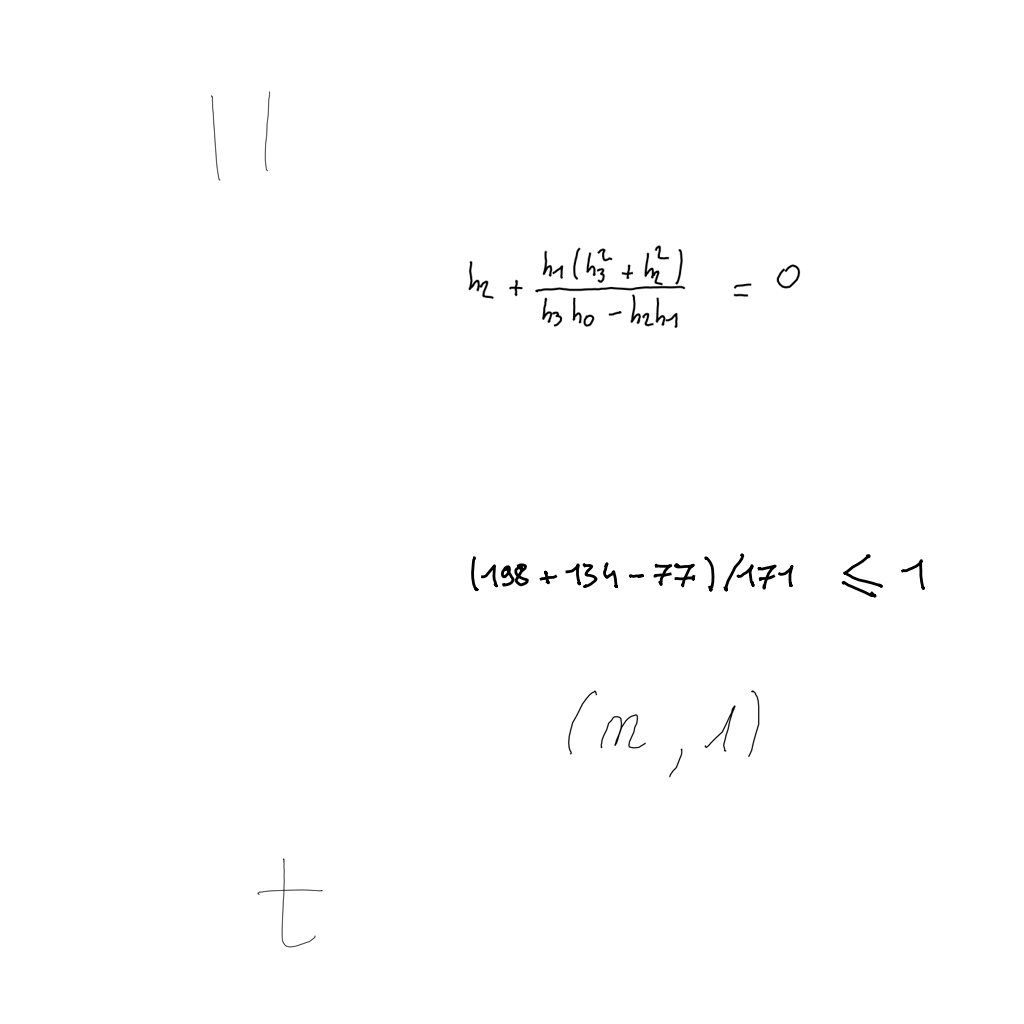 ||
h_2 + \frac{h_1(h_3^2 + h_2^2)}{h_3 h_0 - h_2 h_1} = 0
(198 + 134 - 77)/171 ≤ 1
(n, 1)
t